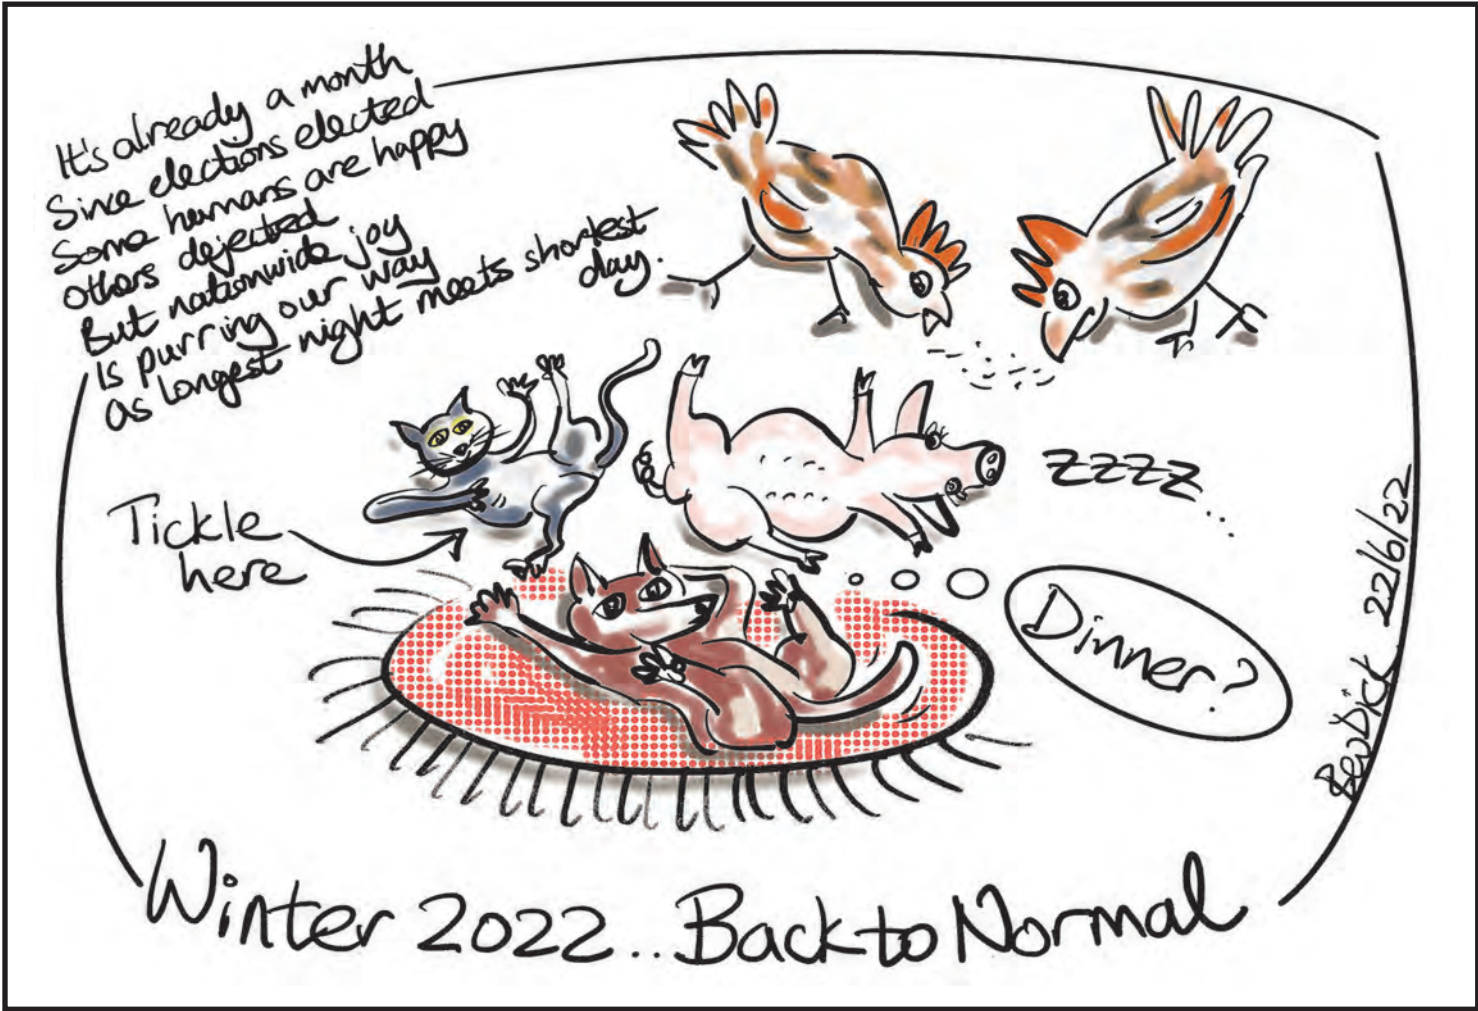 It's already a month
Since elections elected
Some humans are happy
others dejected
But nationwide joy
Is purring our way
as longest night meets shortest
day.
Tickle
here
zzzz
Dinner?
BevDick 22/6/22
Winter 2022.. Back to Normal